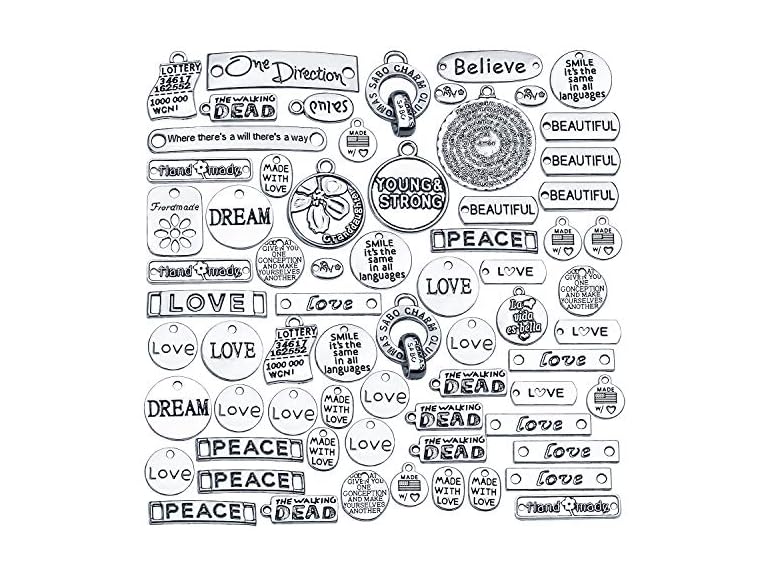 LOTTERY
34617
162552
1000 000
WON!
One Direction
THOMAS SABO CHARM CLUB
SABO
Believe
SMILE
it's the
same
in all
languages
THE WALKING
DEAD
Where there's a will there's a way
MADE
W/
BEAUTIFUL
BEAUTIFUL
BEAUTIFUL
BEAUTIFUL
Hand made
MADE
WITH
LOVE
Granddaughter
YOUNG&
STRONG
DREAM
PEACE
MADE
W/
MADE
W/
GIVEN YOU
ONE
CONCEPTION
AND MAKE
YOURSELVES
ANOTHER
SMILE
it's the
same
in all
languages
Hand made
LOVE
L VE
GIVEN YOU
ONE
CONCEPTION
AND MAKE
YOURSELVES
ANOTHER
LOVE
love
La
vida
es bella
L VE
Love
LOVE
LOTTERY
34617
162552
1000 000
WON!
SMILE
it's the
same
in all
languages
THOMAS SABO CHARM CLUB
SABO
Love
love
THE WALKING
DEAD
L VE
MADE
W/
DREAM
Love
Love
MADE
WITH
LOVE
Love
THE WALKING
DEAD
love
PEACE
MADE
WITH
LOVE
Love
THE WALKING
DEAD
love
Love
PEACE
love
PEACE
THE WALKING
DEAD
GIVEN YOU
ONE
CONCEPTION
AND MAKE
YOURSELVES
ANOTHER
MADE
W/
MADE
WITH
LOVE
MADE
WITH
LOVE
Hand made